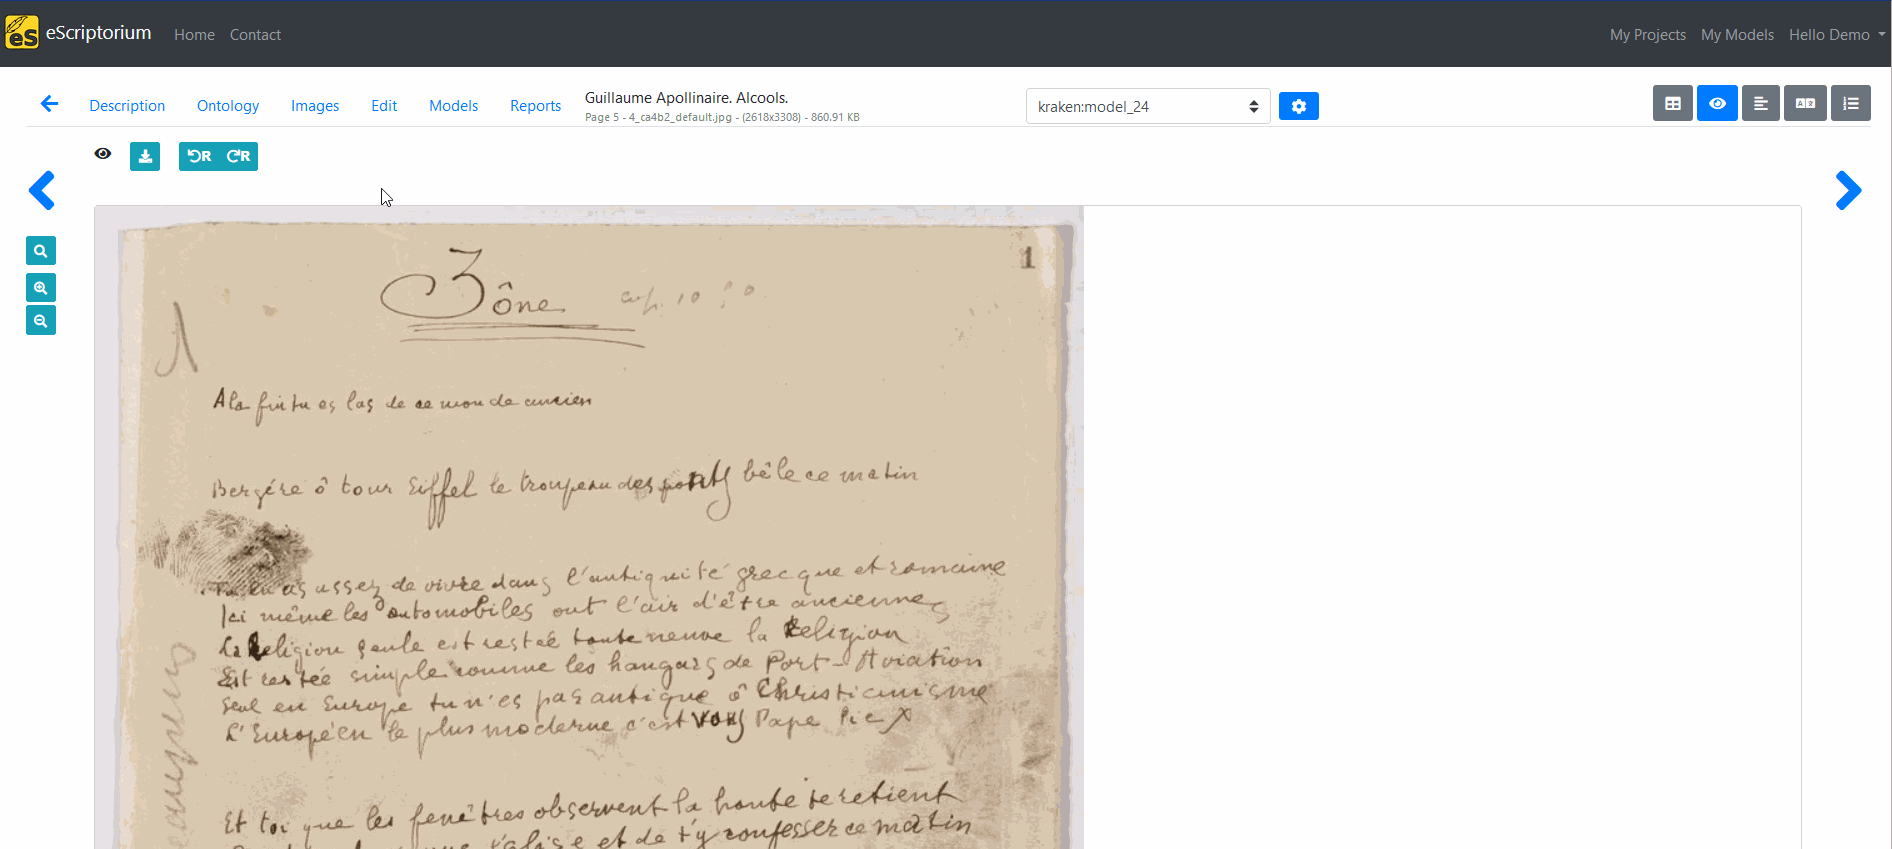 eScriptorium Home Contact My Projects My Models Hello Demo
Description Ontology Images Edit Models Reports
Guillaume Apollinaire. Alcools.
Page 5 - 4_ca4b2_default.jpg - (2618x3308) - 860.91 KB
kraken:model_24
R R
1
Zône
A la fin tu es las de ce monde ancien
Bergère ô tour Eiffel le troupeau des ponts bêle ce matin
Tu en as assez de vivre dans l'antiquité grecque et romaine
Ici même les automobiles ont l'air d'être anciennes
La Religion seule est restée toute neuve la Religion
Est restée simple comme les hangars de Port-Aviation
Seul en Europe tu n'es pas antique ô Christianisme
L'Européen le plus moderne c'est vous Pape Pie X
Et toi que les fenêtres observent la honte te retient
et de t'y confesser ce matin